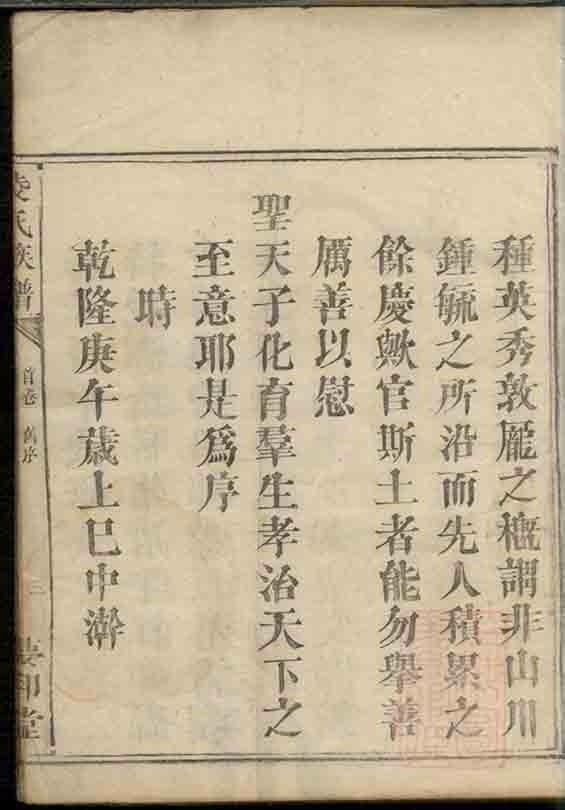 種英秀敦龎之槪謂非山川
鍾毓之所沿而先人積累之
餘慶歟官斯土者能勿舉善
厲善以慰
聖天子化育羣生孝治天下之
至意耶是爲序
時
乾隆庚午歲上巳中澣
氏族譜
首卷 舊序
三
堂